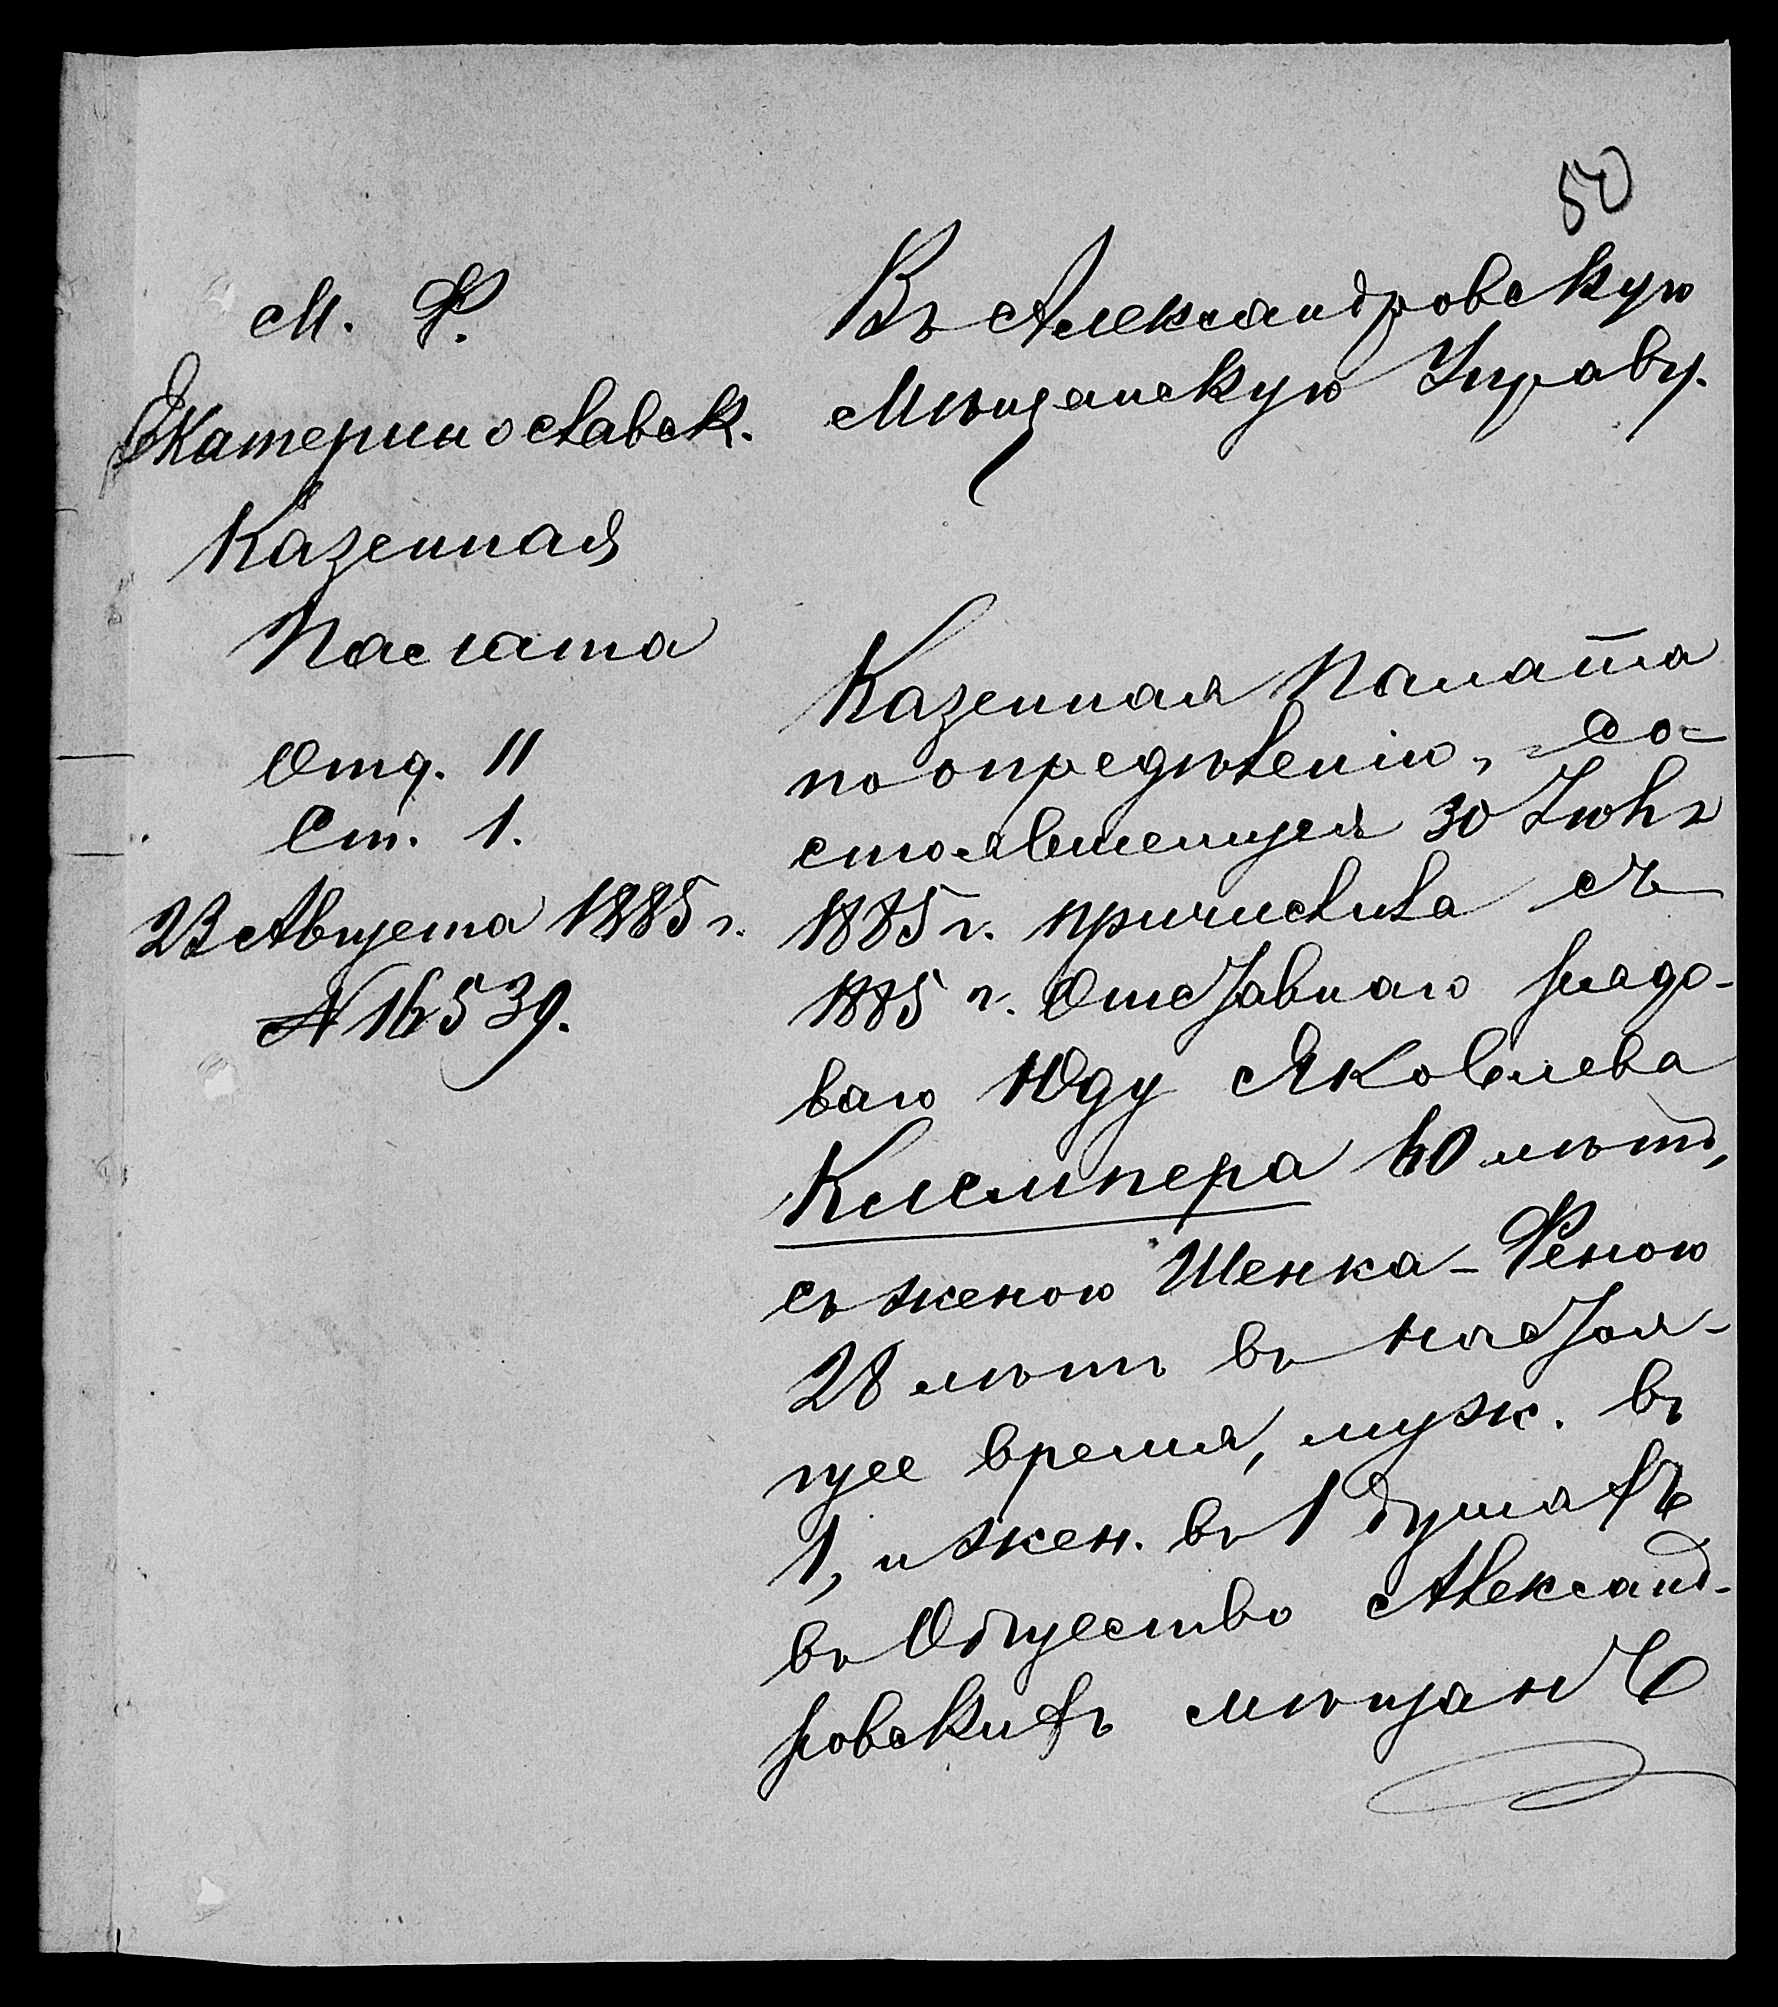 50
М. Ф.
Екатеринославск.
Казенная
Палата
Отд. II
Ст. 1.
23 Августа 1885 г.
№ 16539.
Въ Александровскую
Мѣщанскую Управу.
Казенная Палата
по опредѣленію, со-
стоявшемуся 30 Іюня
1885 г. причислила съ
1885 г. Отставнаго рядо-
ваго Юду Яковлева
Клемпера 40 лѣтъ,
съ женою Шенка-Фенею
28 лѣтъ въ настоя-
щее время, муж. въ
1, и жен. въ 1 душахъ
въ Общество Александ-
ровскихъ мѣщанъ